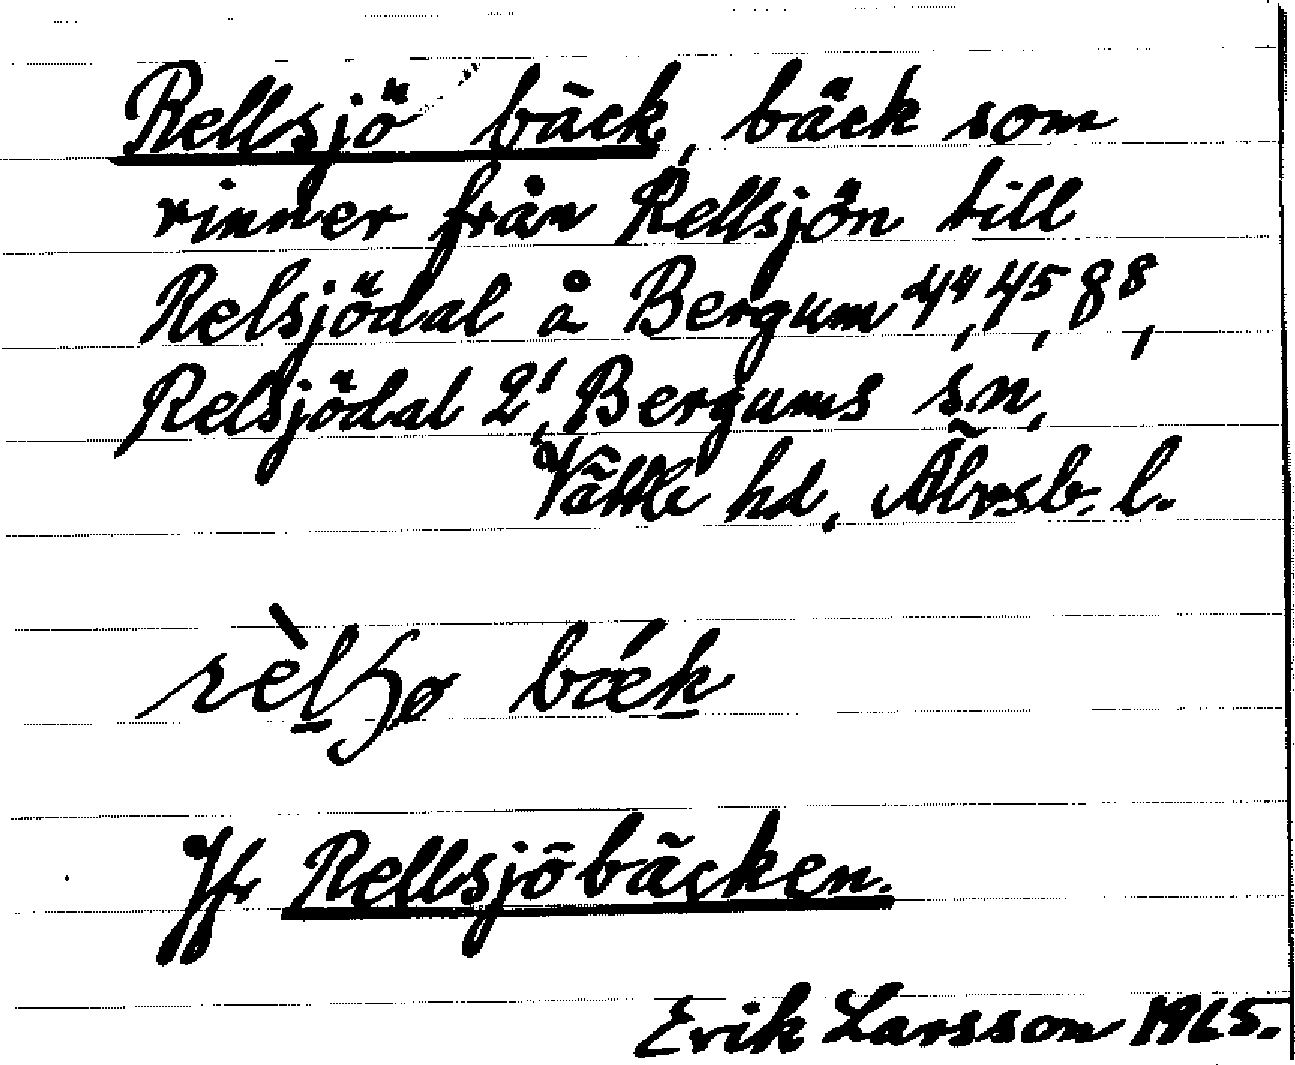 Rellsjö bäck, bäck som
rinner från Rellsjön till
Relsjödal å Bergum 4⁴, 4⁵, 8⁸,
Relsjödal 2¹, Bergums sn,
Vättle hd, Älvsb. l.
rèlʒø bǽk
Jfr Rellsjöbäcken.
Erik Larsson 1965.